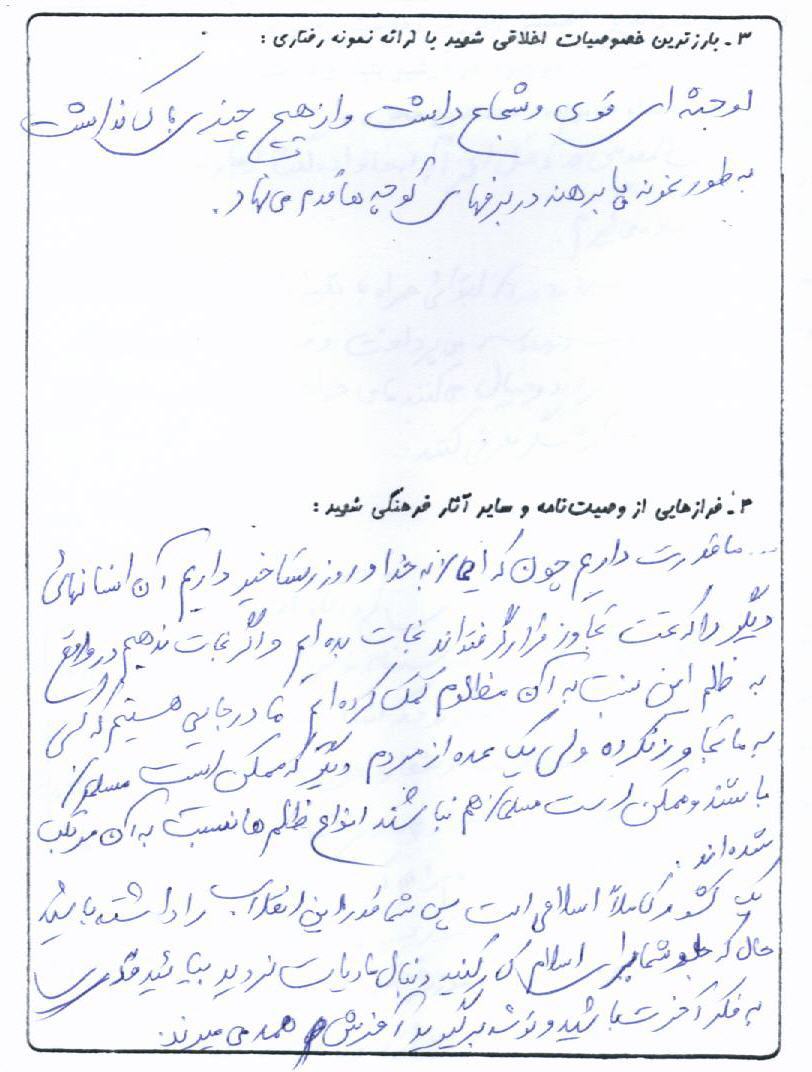 ۳ـ بارزترین خصوصیات اخلاقی شهید با ارائه نمونه رفتاری :
او جثه ای قوی و شجاع داشت و از هیچ چیزی باک نداشت
به طور نمونه پا برهنه در برفهای کوچه ها قدم می نهاد .
۴ـ فرازهایی از وصیت‌نامه و سایر آثار فرهنگی شهید :
... ما قدرت داریم چون که ایمان به خدا و روز رستاخیز داریم آن انسانهائی
دیگر را که تحت تجاوز قرار گرفته‌اند نجات بده ایم و اگر نجات ندهیم در واقع
به ظلم این نسبت به آن مظلوم کمک کرده ایم ما در جایی هستیم که کسی
به ما تجاوز نکرده ولی یک عده از مردم دیگر که ممکن است مسلمان
باشند و ممکن است مسلمان هم نباشند انواع ظلم ها نسبت به آن مرتکب
شده اند .
یک کشور کاملاً اسلامی است پس شما قدر این انقلاب را داشته باشید
حال که شما برای اسلام کار کنید دنبال مادیات نروید بیائید قدری
به فکر آخرت باشید و توشه برگیرید آخرش همه می میرند .